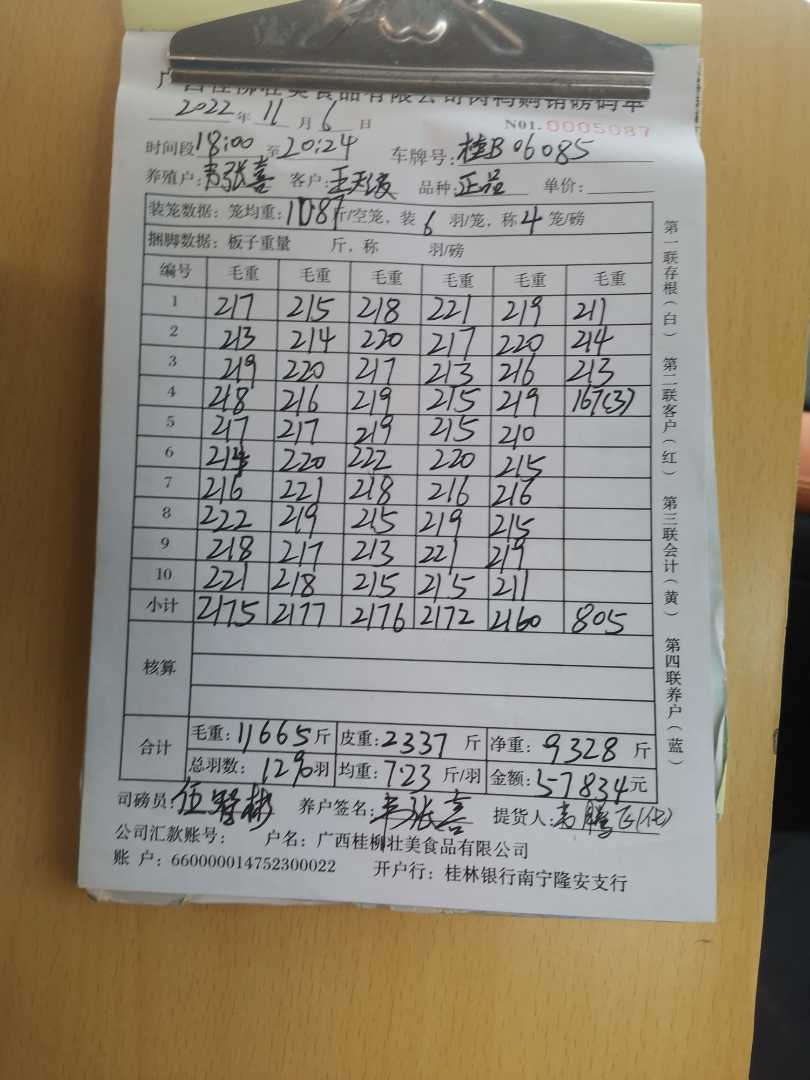 广西桂柳壮美食品有限公司肉鸭购销磅码单
2022年 11月 6日 N01.0005087
时间段18:00至20:24 车牌号:桂B06085
养殖户:韦张喜 客户: 品种:正品 单价:
装笼数据:笼均重:10.87斤/空笼,装6羽/笼,称4笼/磅
捆脚数据:板子重量 斤,称 羽/磅
编号 毛重 毛重 毛重 毛重 毛重 毛重
1 217 215 218 221 219 211
2 213 214 220 217 220 214
3 219 220 217 213 216 213
4 218 216 219 215 219 167(3)
5 217 217 219 215 210
6 214 220 222 220 215
7 216 221 218 216 216
8 222 219 215 219 215
9 218 217 213 221 219
10 221 218 215 215 211
小计 2175 2177 2176 2172 2160 805
核算
合计 毛重:11665斤 皮重:2337斤 净重:9328斤
总羽数:1290羽 均重:7.23斤/羽 金额:57834元
司磅员:伍 彬 养户签名:韦张喜 提货人: 腾飞(代)
公司汇款账号: 户名:广西桂柳壮美食品有限公司
账 户:660000014752300022 开户行:桂林银行南宁隆安支行
第一联存根(白) 第二联客户(红) 第三联会计(黄) 第四联养户(蓝)